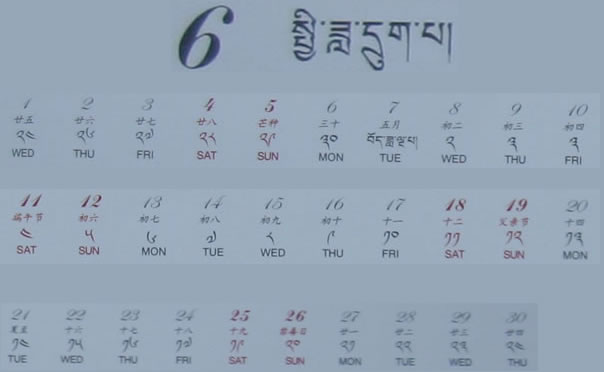 6 སྤྱི་ཟླ་དྲུག་པ།
1 2 3 4 5 6 7 8 9 10
廿五 廿六 廿七 廿八 芒种 三十 五月 初二 初三 初四
༢༤ ༢༦ ༢༧ ༢༨ ༢༩ ༣༠ བོད་ཟླ་ལྔ་པ། ༢ ༣ ༣
WED THU FRI SAT SUN MON TUE WED THU FRI
11 12 13 14 15 16 17 18 19 20
端午节 初六 初七 初八 初九 初十 十一 十二 父亲节 十四
༤ ༥ ༦ ༧ ༨ ༩ ༡༠ ༡༡ ༡༢ ༡༣
SAT SUN MON TUE WED THU FRI SAT SUN MON
21 22 23 24 25 26 27 28 29 30
夏至 十六 十七 十八 十九 禁毒日 廿一 廿二 廿三 廿四
༡༤ ༡༥ ༡༦ ༡༧ ༡༩ ༢༠ ༢༡ ༢༢ ༢༣ ༢༤
TUE WED THU FRI SAT SUN MON TUE WED THU